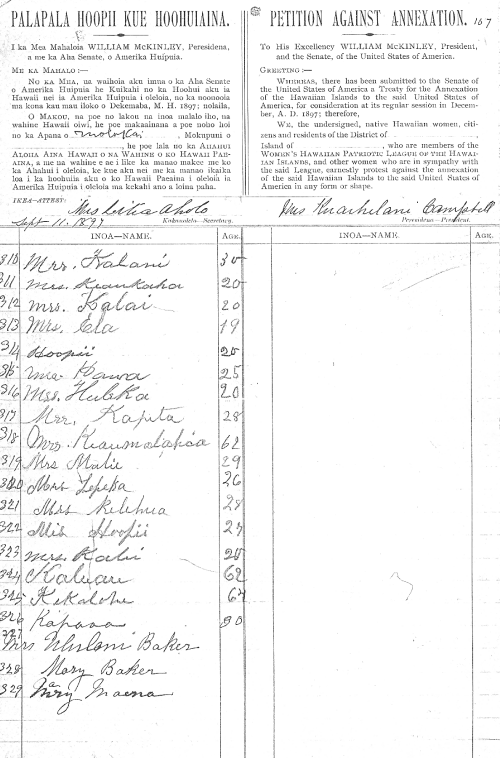 PALAPALA HOOPII KUE HOOHUIAINA.
I ka Mea Mahaloia WILLIAM McKINLEY, Peresidena,
a me ka Aha Senate, o Amerika Huipuia.
ME KA MAHALO:—
NO KA MEA, ua waihoia aku imua o ka Aha Senate
o Amerika Huipuia he Kuikahi no ka Hoohui aku ia
Hawaii nei ia Amerika Huipuia i oleloia, no ka noonooia
ma kona kau mau iloko o Dekemaba, M. H. 1897; nolaila,
O MAKOU, na poe no lakou na inoa malalo iho, na
wahine Hawaii oiwi, he poe makaainana a poe noho hoi
no ka Apana o Molokai, Mokupuni o
, he poe lala no ka AHAHUI
ALOHA AINA HAWAII O NA WAHINE O KO HAWAII PAE-
AINA, a me na wahine e ae i like ka manao makee me ko
ka Ahahui i oleloia, ke kue aku nei me ka manao ikaika
loa i ka hoohuiia aku o ko Hawaii Paeaina i oleloia ia
Amerika Huipuia i oleloia ma kekahi ano a loina paha.
IKEA—ATTEST:
Mrs Lilia Aholo
Sept 11. 1897
Kakauolelo—Secretary.
PETITION AGAINST ANNEXATION.
167
To His Excellency WILLIAM McKINLEY, President,
and the Senate, of the United States of America.
GREETING:—
WHEREAS, there has been submitted to the Senate of
the United States of America a Treaty for the Annexation
of the Hawaiian Islands to the said United States of
America, for consideration at its regular session in Decem-
ber, A. D. 1897; therefore,
WE, the undersigned, native Hawaiian women, citi-
zens and residents of the District of
Island of , who are members of the
WOMEN'S HAWAIIAN PATRIOTIC LEAGUE OF THE HAWAI-
IAN ISLANDS, and other women who are in sympathy with
the said League, earnestly protest against the annexation
of the said Hawaiian Islands to the said United States of
America in any form or shape.
Mrs Kuaihelani Campbell
Peresidena—President.
INOA—NAME. AGE. INOA—NAME. AGE.
310 Mrs. Kalani 30
311 Mrs. Keankaha 20
312 Mrs. Kalai 20
313 Mrs. Ela 19
314 Hoopii 20
315 Kawa 25
316 Mrs. Hubka 20
317 Mrs. Kapita 28
318 Mrs. 62
319 Mrs Malie 29
320 Mrs Lepeka 26
321 Mrs Kilihua 28
322 Mis Hoopii 27
323 Mrs. Kalii 20
324 Kaluau 62
325 Kekalohe 64
326 Kapaaa 30
327
Mrs Ululani Baker
328 Mary Baker
329 Mary Maena